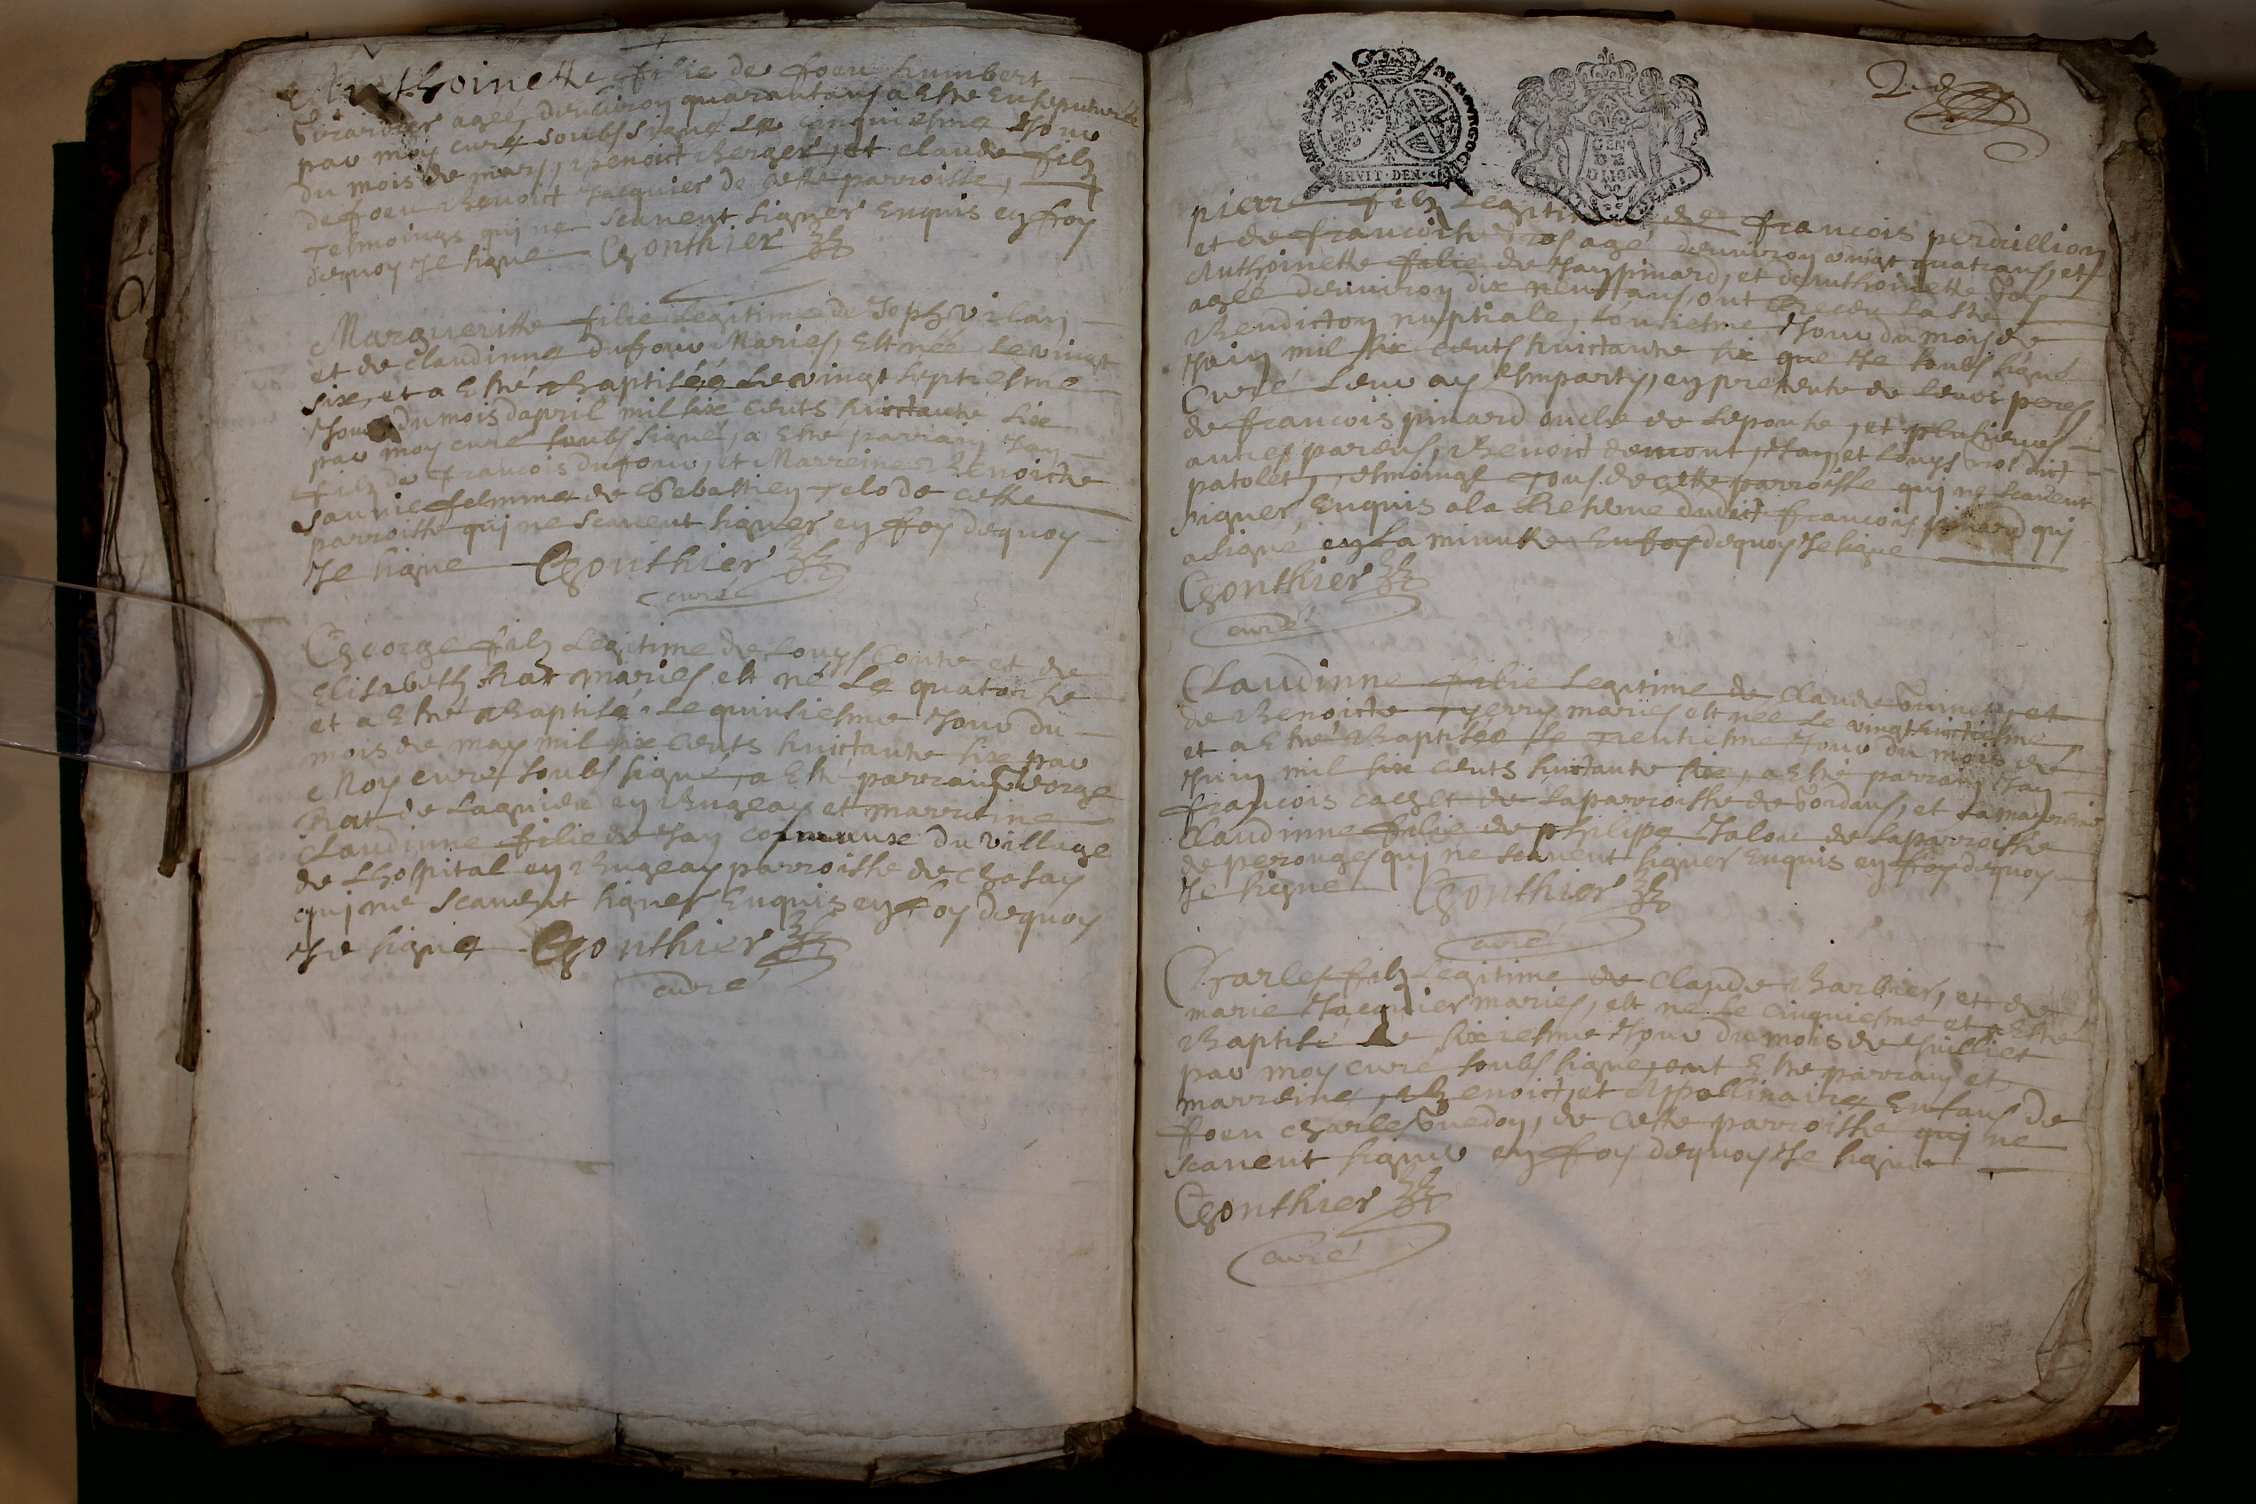 Anthoinette fillie de foeu humbert
Girardier ageé denviron quarantans a esté ensepulturée
par moy curé soubs signé le cinquiesme Jour
du mois de mars, Benoict Berger, et claude filz
de foeu Benoict Jacquier de cette parroisse,
Tesmoings qui ne scauent signer Enquis en foy
dequoy Je signe Gonthier
Margueritte fillie Legitime de Joseph vilan
et de claudinne dufour Mariés, Est neé Le vingt
six, et a Esté Baptiseé Le vingt septiesme
Jour du mois dapril mil six cents huictante six
par moy curé soubs signé, a Esté parrain Jan
filz de francois dufour, et Marreine Benoicte
femme de Sebastien Telo de cette
parroisse qui ne scauent signer en foy dequoy
Je signe Gonthier
curé
George filz Legitime de Louys Conte et de
Elisabeth Rat mariés est né Le quatorse
et a Esté Baptisé Le quinsiesme Jour du
mois de may mil six cents huictante six par
Moy curé soubs signé, a Esté parrain George
Rat de Lagnieu en Bugeay et marreine
Claudinne fillie de Jan du village
de Lhospital en Bugeay parroisse de Chasay
qui ne scauent signer Enquis en foy dequoy
Je signe Gonthier
curé
HVIT DEN
GEN
DE
LION
pierre filz Legitime de francois perdillion
et de francoise agé denviron vingt quatrans, et
Anthoinette fillie de Jan pinard, et danthoinette
ageé denviron dix neuf ans, ont Receu La Ste
Benediction nuptiale, Jour du mois de
Juin mil six cents huictante six que Je soubs signé
Curé Leur ay Imparty, en presence de Leurs peres,
de francois pinard oncle de Lepouse, et plusieurs
autres parens, Benoict demont, Jan, et Louys dict
patolet, Tesmoings Tous de cette parroisse qui ne scauent
signer, Enquis a la Reserue dudict francois pinard qui
a signé en La minutte En foy dequoy Je signe
Gonthier
curé
Claudinne fillie Legitime de Claude Guinet, et
de Benoicte Tyerry mariés est neé Le vingthuictiesme
et a Esté Baptiseé Le Trentiesme Jour du mois de
Juin mil six cents huictante six, a esté parrain Jan
francois cachet de La parroisse de Bordans, et La marreine
Claudinne fillie de philippe Jalou de La parroisse
de perouges qui ne scauent signer Enquis en foy dequoy
Je signe Gonthier
curé
Charles filz Legitime de Claude Barbier, et de
marie Jacquier mariés, est né Le cinquiesme et a Esté
Baptisé Le sixiesme Jour du mois de Juilliet
par moy curé soubs signé, ont Esté parrain et
marreine, Benoict, et Appollinaire Enfans de
foeu charles Guedon, de cette parroisse qui ne
scauent signer en foy dequoy Je signe
Gonthier
curé